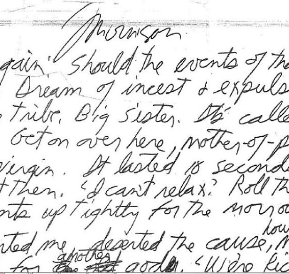 Morrison
again. Should the events of the
Dream of incest & expuls
tribe. Big Sister. It's calle
Get on over here, mother-of-p
Virgin. It lasted 18 second
them. "I can't relax." Roll th
up tightly for the
me, deserted the cause,
another
for god. "We're